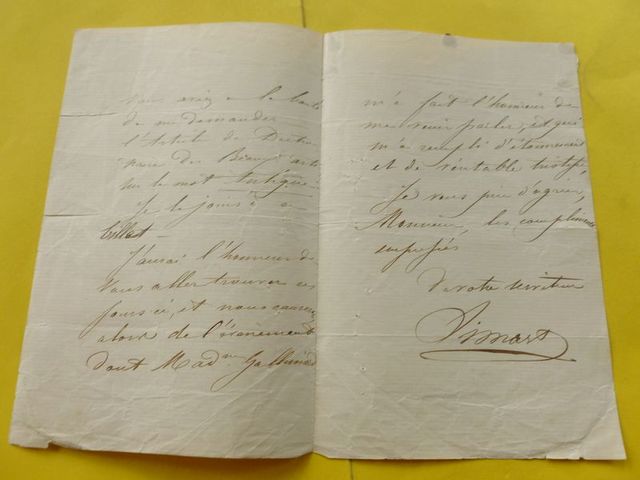 vous aviez la bonté
de me demander
l'Article du Diction
naire des Beaux arts
sur le mot
Je le joins à ce
billet -
J'aurai l'honneur de
vous aller trouver ces
jours ci, et nous causerons
alors de l'évènement
dont Mad.m
m'a fait l'honneur de
me venir parler, et qui
m'a rempli d'étonnement
et de véritable tristesse,
Je vous prie d'agréer,
Monsieur, les compliments
empressés
de votre serviteur
Simart